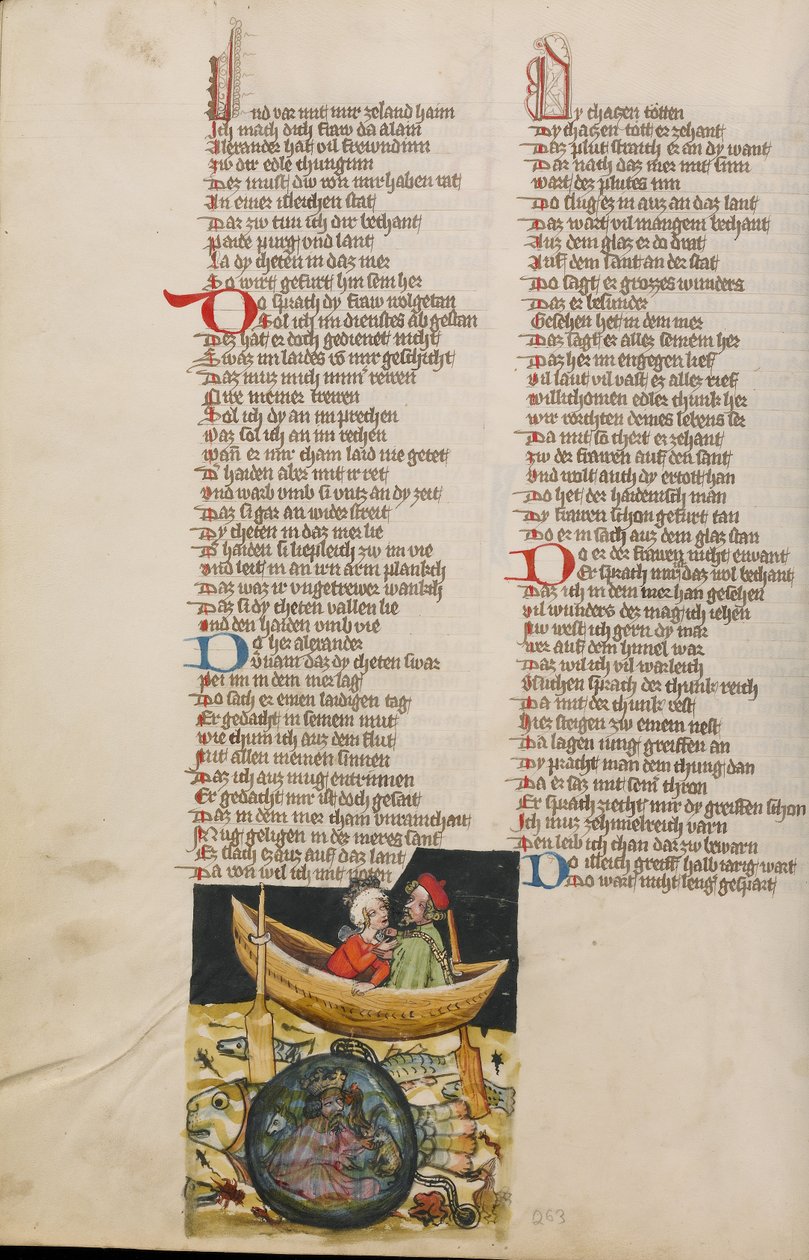 Vnd var mit mir zeland haim
Ich mach dich fraw da alain
Alexander hat vil frewndinn
Zw dir edle chunginn
Dez must dw von mir haben rat
In einer itleichen stat
Daz zw tun ich dir bechant
Paide purg vnd lant
La dy cheten in daz mer
So wirt gefurt hin sem her
Do sprach dy fraw wolgetan
Sol ich im dienstes ab gestan
Dez hat er doch gedienet nicht
Swaz im laides vo mir geschicht
Daz muz mich imm rewen
Awe meiner trewen
Sol ich dy an im prechen
Waz sol ich an im rechen
Wan er mir cham laid nie getet
D haiden aber mit ir ret
Vnd warb vmb si vntz an dy zeit
Daz si gar an wider streit
Dy cheten in daz mer lie
D haiden si liepleich zw im vie
Vnd leit in an irn arm plankch
Daz waz ir vngetrewer wankch
Daz si dy cheten vallen lie
Vnd den haiden vmb vie
Do her alexander
Vernam daz dy cheten swar
Pei im in dem mer lag
Do sach er einen laidigen tag
Er gedacht in seinem mut
Wie chum ich auz dem flut
Mit allen meinen sinnen
Daz ich auz mug entrinnen
Er gedacht mir ist doch gesait
Daz in dem mer cham vnrainchait
Mug geligen in dez meres sant
Ez slach ez auz auf daz lant
Da von wil ich mit noten
Dy chaczen totten
Dy chaczen tott er zehant
Daz plut straich er an dy want
Dar nach daz mer mit sinn
Wart dez plutes inn
Do slug ez in auz an daz lant
Daz wart vil mangem bechant
Auz dem glaz er do drat
Auf dem sant an der stat
Do sagt er grozzes wunders
Daz er besunder
Gesehen het in dem mer
Daz sagt er allez seinem her
Daz her im engegen lief
Vil laut vil vast ez allez rief
Willichomen edler chunk her
Wir vorchten deines lebens ser
Da mit so chert er zehant
Zw der frawen auf den sant
Vnd wolt auch dy ertott han
Do het der haidenisch man
Dy frawen schon gefurt tan
Do er in sach auz dem glaz stan
Do er der frawen nicht envant
Er sprach mir daz wol bechant
Daz ich in dem mer han gesehen
Vil wunders dez mag ich iehen
Nw west ich gern dy mar
Wer auf dem himel war
Daz wil ich vil warleich
Vsuchen sprach der chunk reich
Da mit der chunk vest
Hiez steigen zw einem nest
Da lagen iung greiffen an
Dy pracht man dem chung dan
Da er saz mit sem thron
Er sprach ziecht mir dy greiffen schon
Ich muz zehimelreich varn
Den leib ich chan dar zw bewarn
Do itleich greiff halb iarig wart
Do wart nicht leng gespart
263